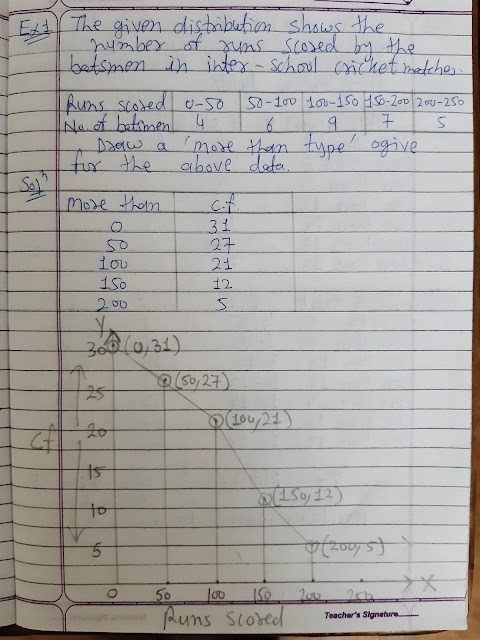 Ex1 The given distribution shows the
number of runs scored by the
batsmen in inter-school cricket matches.
Runs scored 0-50 50-100 100-150 150-200 200-250
No. of batsmen 4 6 9 7 5
Draw a 'more than type' ogive
for the above data.
Solⁿ
more than C.f.
0 31
50 27
100 21
150 12
200 5
Y
30 (0,31)
25 (50,27)
Cf 20 (100,21)
15
10 (150,12)
5 (200,5)
0 50 100 150 200 250 X
Runs Scored
Teacher's Signature